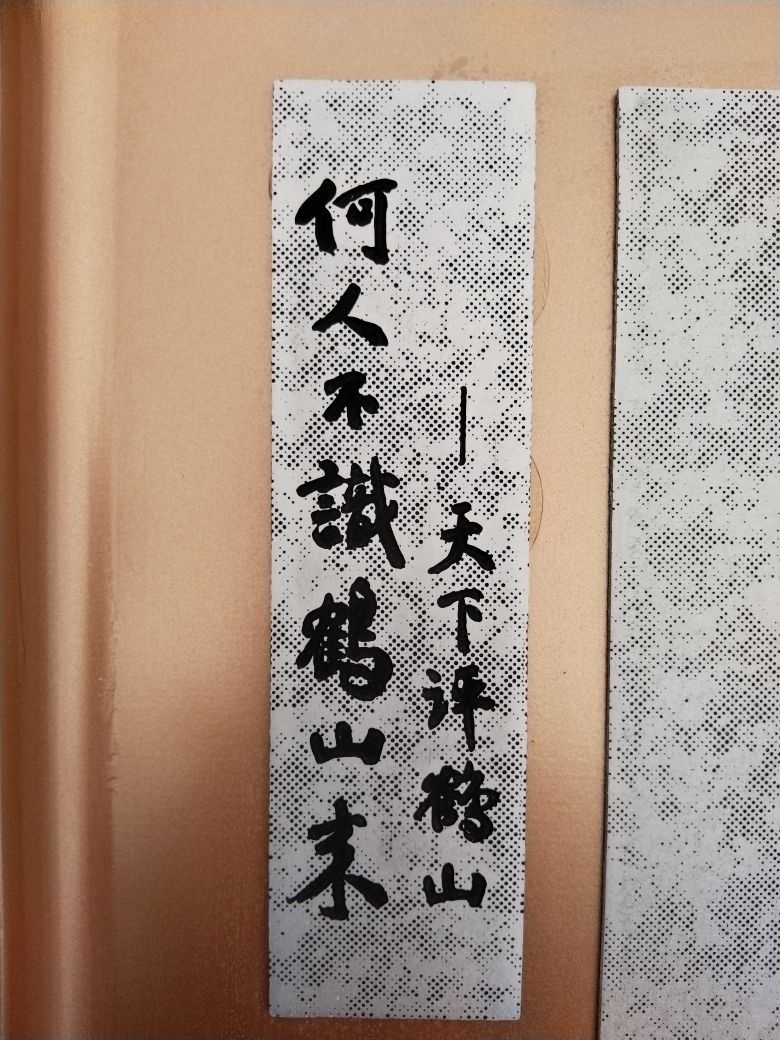 何人不識鶴山来
—天下评鹤山